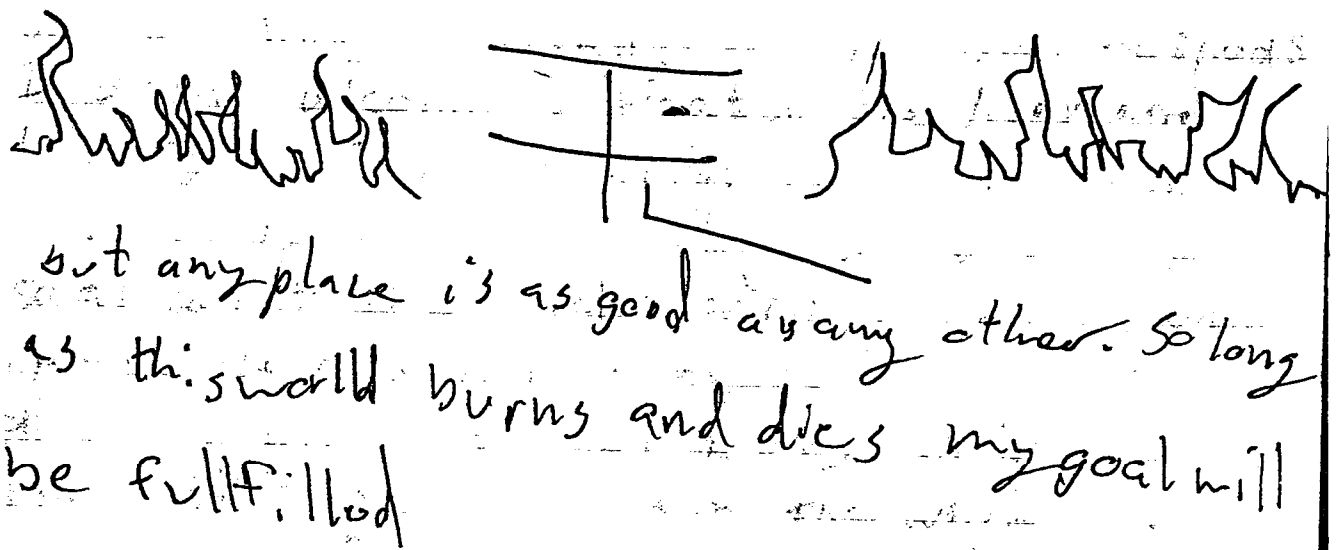 but any place is as good as any other. So long
as this world burns and dies my goal will
be fullfilled